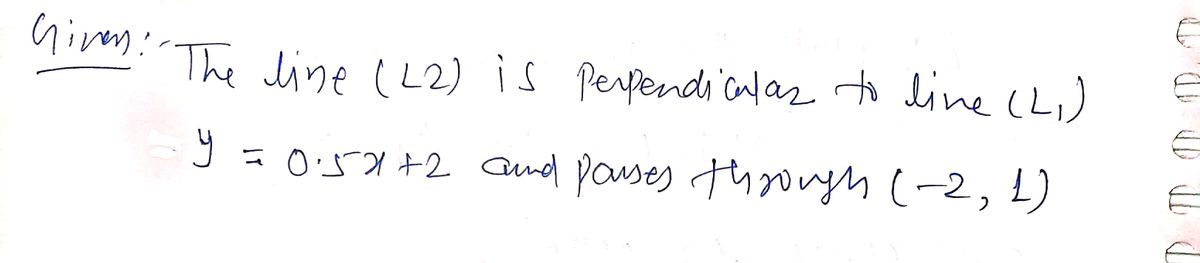 Given:- The line (L2) is Perpendicular to line (L1)
y = 0.5x+2 and passes through (-2, 1)